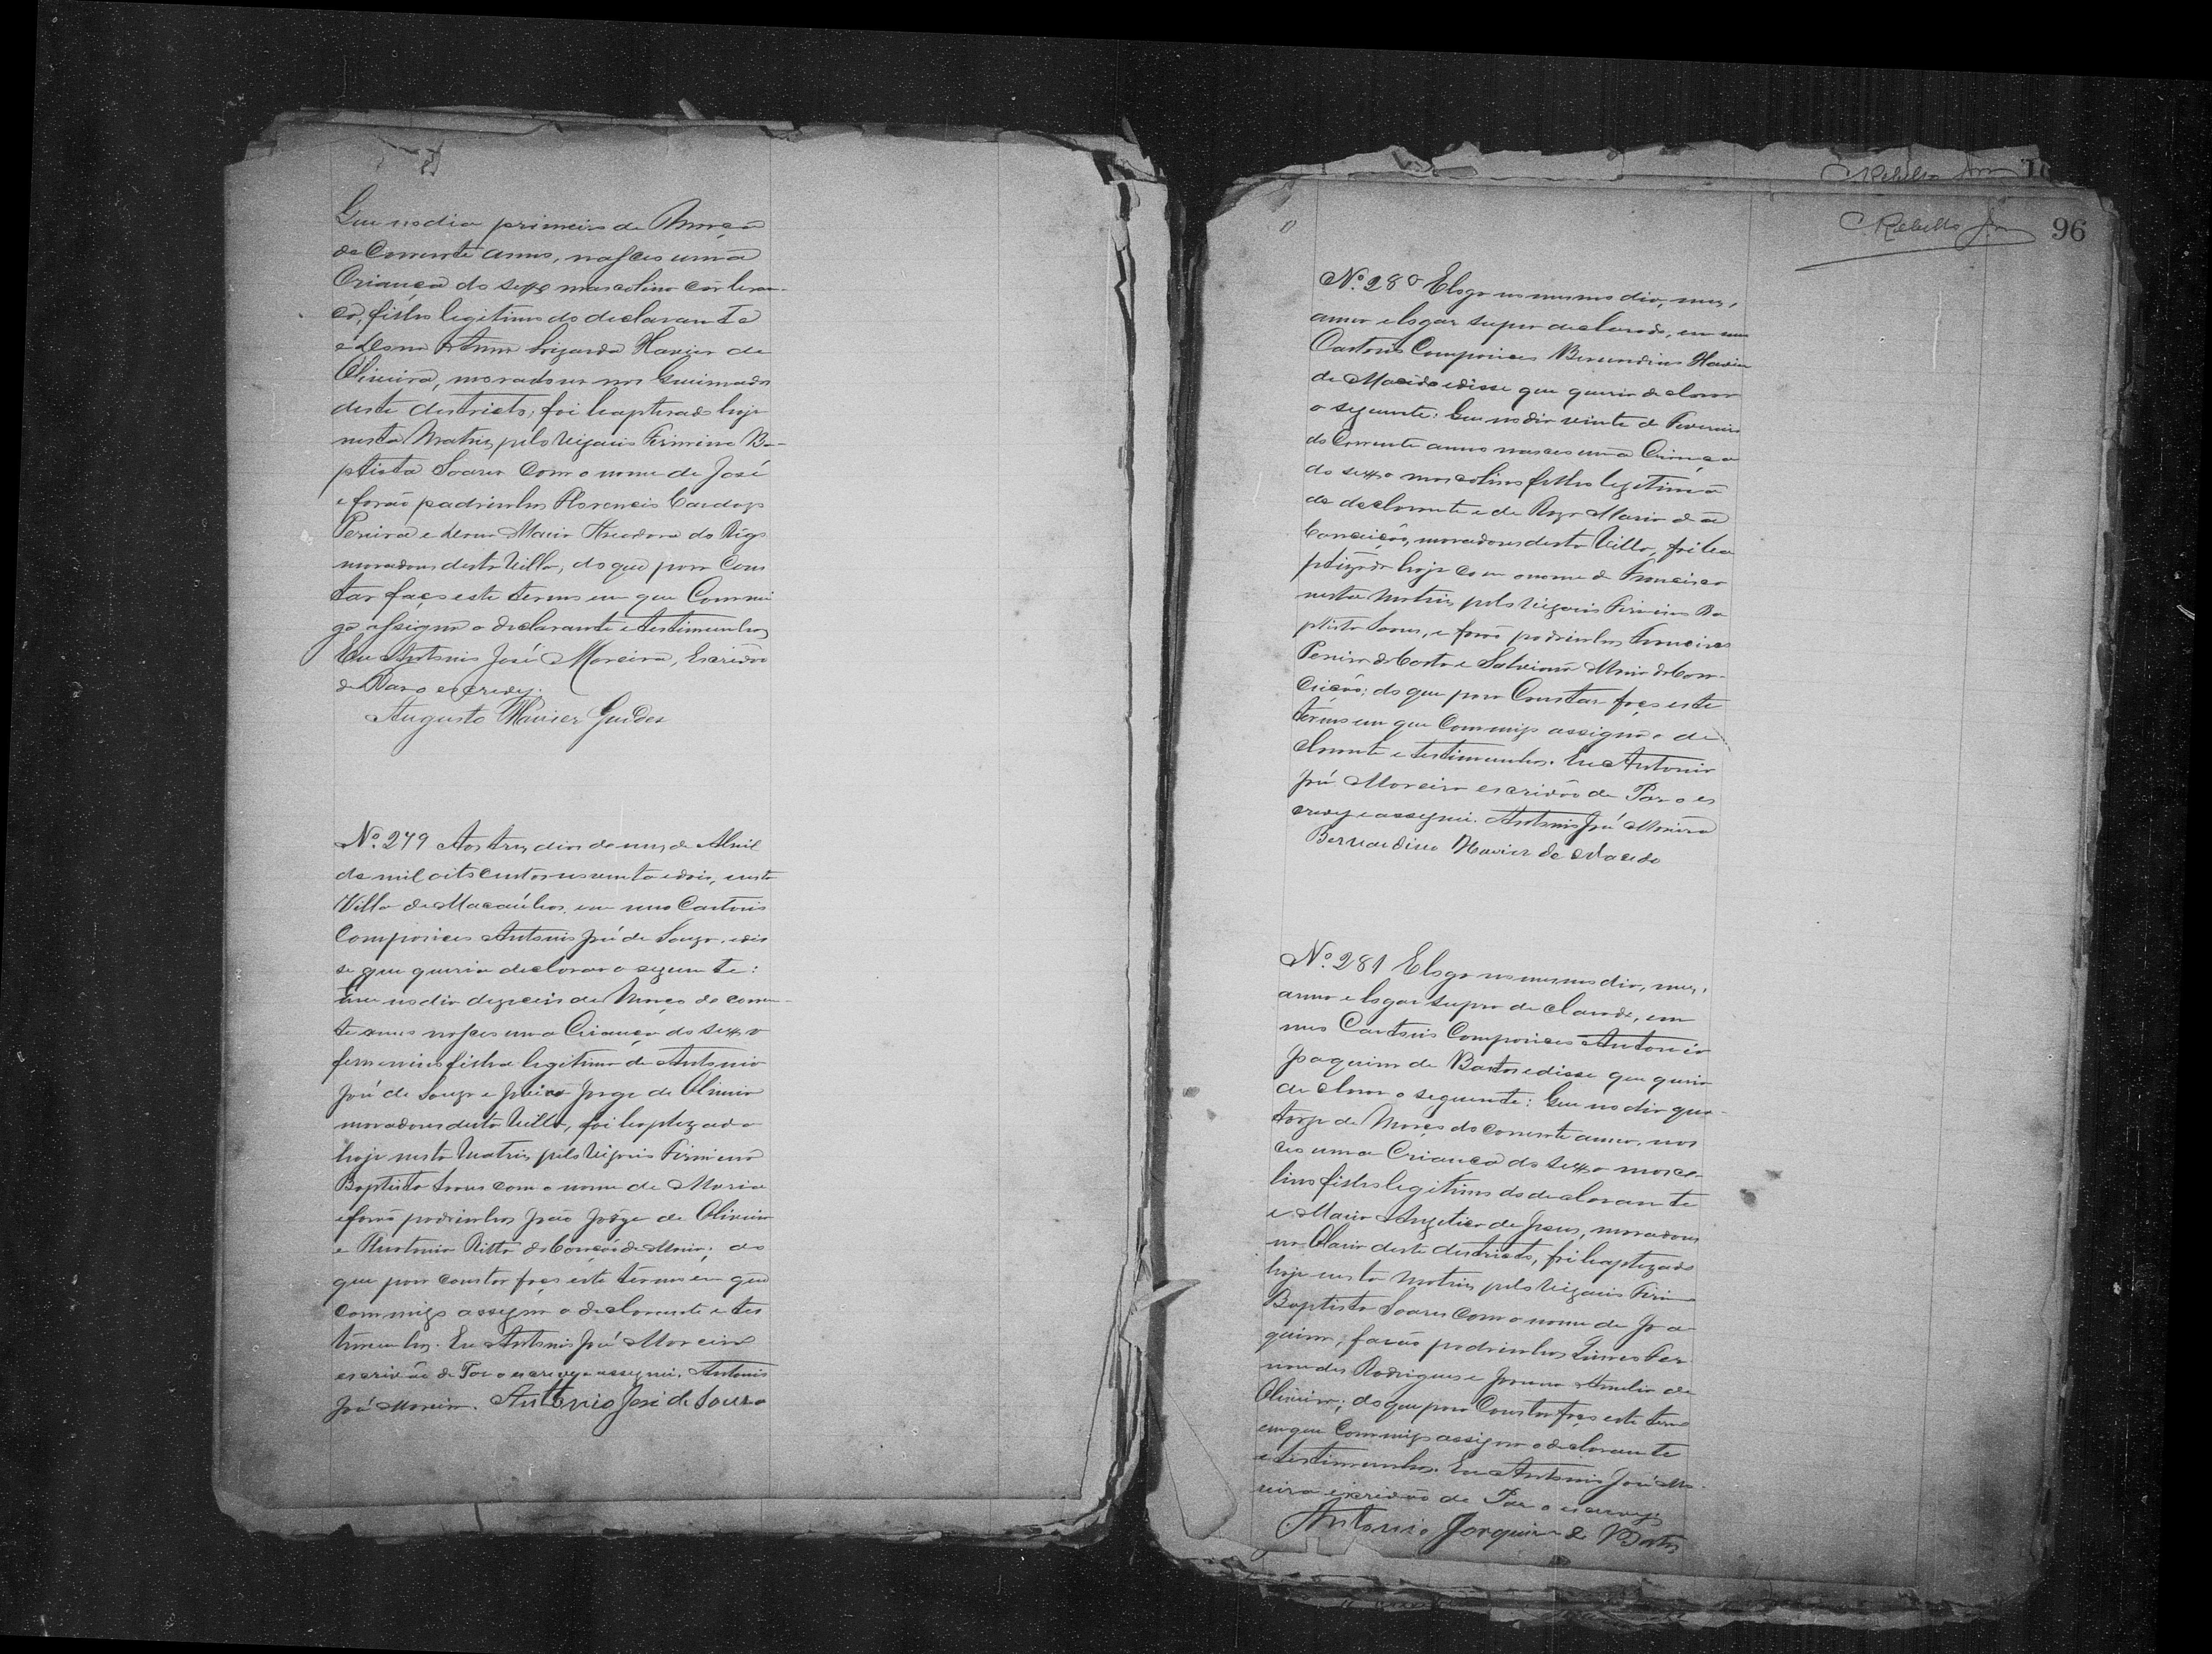 Que no dia primeiro de Março
do Corrente anno, nasceo uma
Criança do sexo masculino côr bran-
ca, filho legitimo do declarante
e Dona Anna Xavier de
Oliveira, moradores nos Queimados
deste districto, foi baptisado hoje
nesta Matris pelo Vigario Firmino Ba-
ptista Soares com o nome de José
e forão padrinhos Florencio Cardozo
Pereira e Dona Maria Theodora do Rego
moradores desta Villa, do que para Cons
tar faço este termo em que Commi
go assigna o declarante e testimunhas
Eu Antonio José Moreira, Escrivão
de Paz o escrevy.
Augusto Xavier Guedes
Nº 279 Aos tres dias do mez de Abril
de mil oito centos noventa e dois, nesta
Villa de Macaúbas, em meo Cartorio
Compareceo Antonio José de Souza, e dis
se que queria declarar o seguinte:
Que no dia dezeseis de Março do corren-
te anno nasceo uma Criança do sexo
femenino filha legitima de Antonio
José de Souza e Jorge de Oliveira
moradores desta Villa, foi baptizada
hoje nesta Matris pelo Vigario Firmino
Baptista Soares com o nome de Maria
e forão padrinhos João Jorge de Oliveira
e Ritta do Coração de Maria; do
que para constar faço este termo em que
commigo assigna o declarante e tes
timunhas. Eu Antonio José Moreira
escrivão de Paz o escrevy e assignei. Antonio
José Moreira. Antonio José de Souza
Rebello Jor
Rebello Jor 96
Nº 280 E logo no mesmo dia, mez,
anno e logar supra declarado, em meu
Cartorio Compareceo Bernardino Xavier
de Macêdo e disse que queria declarar
o seguinte: Que no dia vinte de Fevereiro
do Corrente anno nasceo uma Criança
do sexo masculino filho legitimo
do declarante e de Roza Maria da
Conceição, moradores desta Villa, foi ba
ptizado hoje com o nome de Francisco
nesta Matris pelo Vigario Firmino Ba
ptista Soares, e forão padrinhos Francisco
Pereira da Costa e Salviana Maria da Con-
ceição; do que para Constar faço este
termo em que Commigo assigna o de
clarante e testimunhas. Eu Antonio
José Moreira escrivão de Paz o es
crevy e assignei. Antonio José Moreira
Bernardino Xavier de Macedo
Nº 281 E logo no mesmo dia, mez,
anno e logar supra declarado, em
meo Cartorio Compareceo Antonio
Joaquim de Bastos e disse que queria
declarar o seguinte: Que no dia qua-
torze de Março do corrente anno, nas
ceo uma Criança do sexo mascu-
lino filho legitimo do declarante
e Maria Angelica de Jesus, moradores
no deste districto, foi baptizado
hoje nesta Matris pelo Vigario Firmino
Baptista Soares com o nome de Joa
quim; forão padrinhos Fer
nandes Rodrigues e Joanna Amelia de
Oliveira; do que para Constar faço este termo
em que Commigo assigna o declarante
e testimunhas. Eu Antonio José Mo-
reira escrivão de Paz o escrevy.
Antonio Joaquim de Bastos